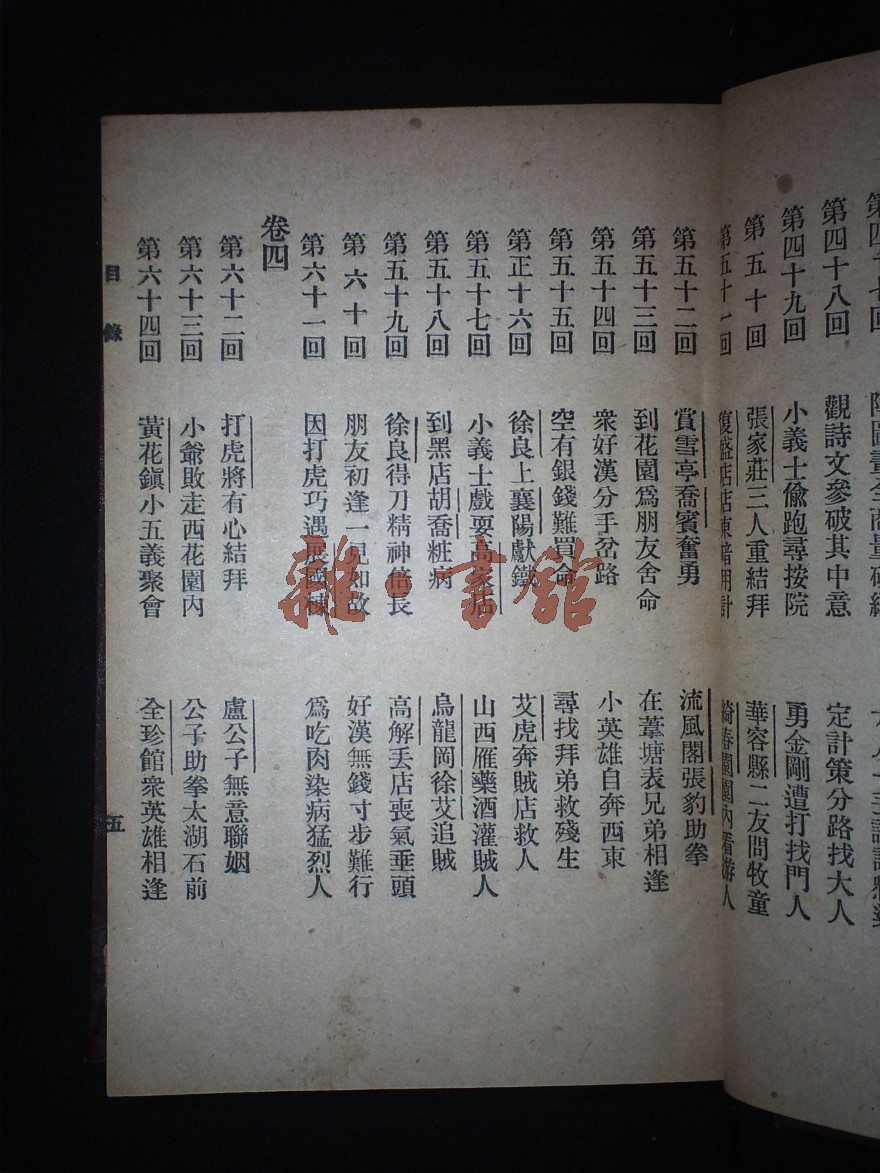 觀詩文參破其中意 定計策分路找大人
第四十八回
第四十九回 小義士偷跑尋按院 勇金剛遭打找門人
第五十回 張家莊三人重結拜 華容縣二友問牧童
第五十一回 復盛店店東暗用計 綺春園園內看游人
第五十二回 賞雪亭喬賓奮勇 流風閣張豹助拳
第五十三回 到花園爲朋友舍命 在葦塘表兄弟相逢
第五十四回 衆好漢分手岔路 小英雄自奔西東
第五十五回 空有銀錢難買命 尋找拜弟救殘生
第正十六回 徐良上襄陽獻鐵 艾虎奔賊店救人
第五十七回 小義士戲耍高家店 山西雁藥酒灌賊人
第五十八回 到黑店胡喬粧病 烏龍岡徐艾追賊
第五十九回 徐良得刀精神倍長 高解丟店喪氣垂頭
第六十回 朋友初逢一見如故 好漢無錢寸步難行
第六十一回 因打虎巧遇展國棟 爲吃肉染病猛烈人
卷四
第六十二回 打虎將有心結拜 盧公子無意聯姻
第六十三回 小爺敗走西花園內 公子助拳太湖石前
第六十四回 黃花鎭小五義聚會 全珍館衆英雄相逢
目錄
五
雜·書館